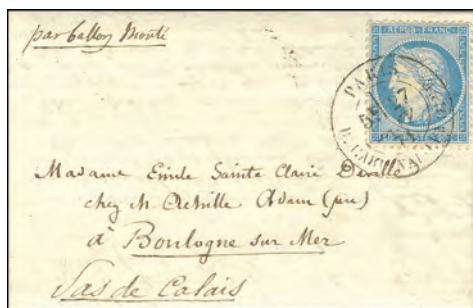 par ballon Monté
REPUB · FRANC
POSTES
PARIS
Madame Emile Sainte Claire Deville
chez M Achille Adam (père)
à Boulogne sur Mer
Pas de Calais